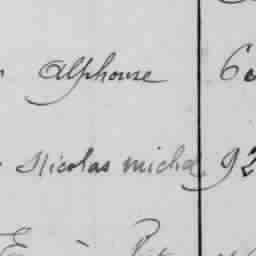 Alphonse 60
Nicolas michel 92